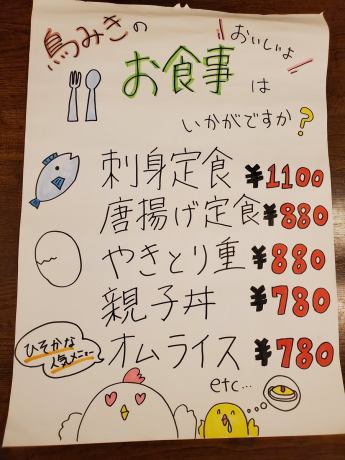 鳥みきの
おいしいよ
お食事は
いかがですか?
刺身定食 ¥1100
唐揚げ定食 ¥880
やきとり重 ¥880
親子丼 ¥780
ひそかな
人気メニュー
オムライス ¥780
etc...